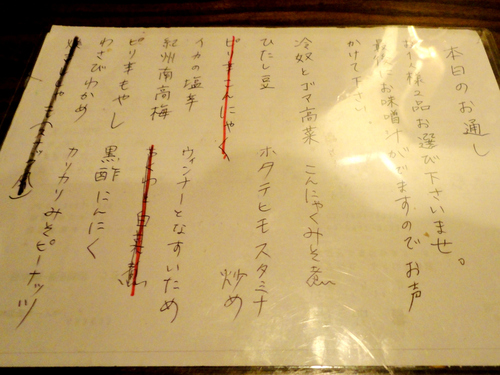 本日のお通し
お一人様2品お選び下さいませ。
最後にお味噌汁がでますのでお声
かけて下さい。
冷奴とゴマ高菜 こんにゃくみそ煮
ひたし豆 ホタテヒモスタミナ炒め
ピリ辛こんにゃく
イカの塩辛 ウィンナーとなすいため
紀州南高梅
ピリ辛もやし 黒酢にんにく
わさびわかめ カリカリみそピーナッツ